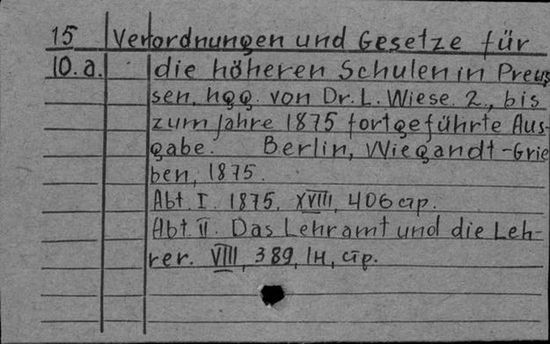 15 Verordnungen und Gesetze für
10.a. die höheren Schulen in Preus
sen, hgg. von Dr. L. Wiese. 2., bis
zum Jahre 1875 fortgeführte Aus-
gabe. Berlin, Wiegandt-Grie
ben, 1875.
Abt. I. 1875. XVIII, 406 стр.
Abt. II. Das Lehramt und die Leh-
rer. VIII, 389, 1н, стр.